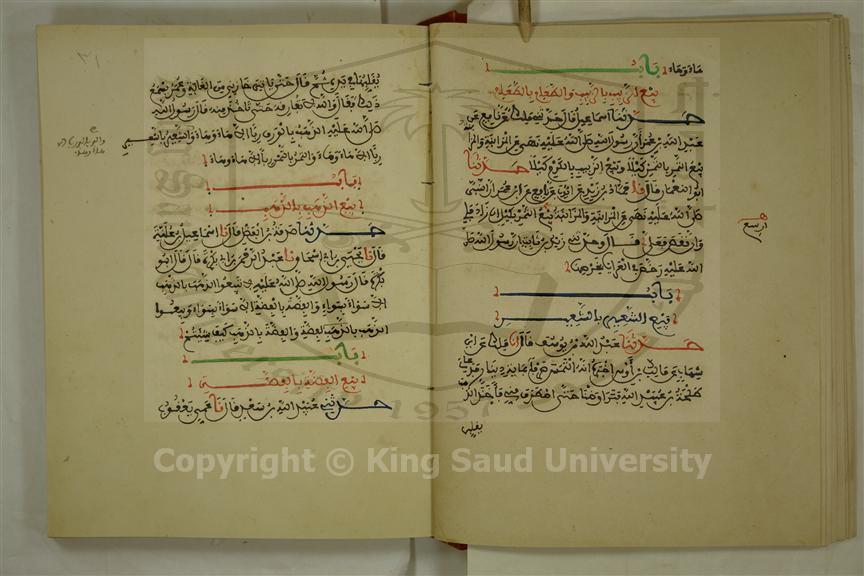 ماء وهاء باب
بيع الزبيب بالزبيب والطعام بالطعام
حدثنا اسماعيل قال حدثني ملك عن نافع عن
عبد الله بن عمر ان رسول الله صلى الله عليه نهى عن المزابنة والمزابنة
بيع التمر بالتمر كيلا وبيع الزبيب بالكرم كيلا حدثنا
ابو النعمان قال نا حماد بن زيد عن ايوب عن نافع عن ابن عمر ان النبي
صلى الله عليه نهى عن المزابنة والمزابنة بيع التمر بكيل ان زاد فلي
وان نقص فعلي قال وحدثني زيد بن ثابت ان رسول الله صلى
الله عليه رخص في العرايا بخرصها
باب
بيع الشعير بالشعير
حدثنا عبد الله بن يوسف قال انا ملك عن ابن
شهاب عن ملك بن اوس اخبره انه التمس صرفا بمائة دينار فدعاني
طلحة بن عبيد الله فتراوضنا حتى اصطرف مني فاخذ الذهب
يقلبها
يقلبها في يده ثم قال حتى ياتي خازني من الغابة وعمر يسمع
ذلك فقال والله لا تفارقه حتى تاخذ منه قال رسول الله
صلى الله عليه الذهب بالورق ربا الا هاء وهاء والشعير بالشعير
ربا الا هاء وهاء والتمر بالتمر ربا الا هاء وهاء
باب
بيع الذهب بالذهب
حدثنا صدقة بن الفضل قال انا اسماعيل بن علية
قال نا يحيى بن ابي اسحاق نا عبد الرحمن بن ابي بكرة قال قال ابو
بكرة قال رسول الله صلى الله عليه لا تبيعوا الذهب بالذهب
الا سواء بسواء والفضة بالفضة الا سواء بسواء وبيعوا
الذهب بالفضة والفضة بالذهب كيف شئتم
باب
بيع الفضة بالفضة
حدثني عبيد الله بن سعد قال نا عمي يعقوب
Copyright © King Saud University
1957